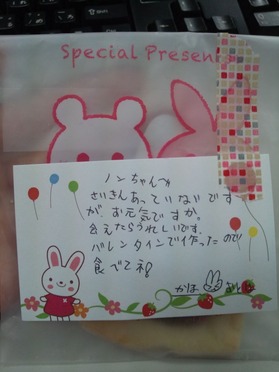 Special Present
ノンちゃんへ
さいきんあっていないです
が、お元気ですか。
会えたらうれしいです。
バレンタインで作ったので
食べてネ!
かほ